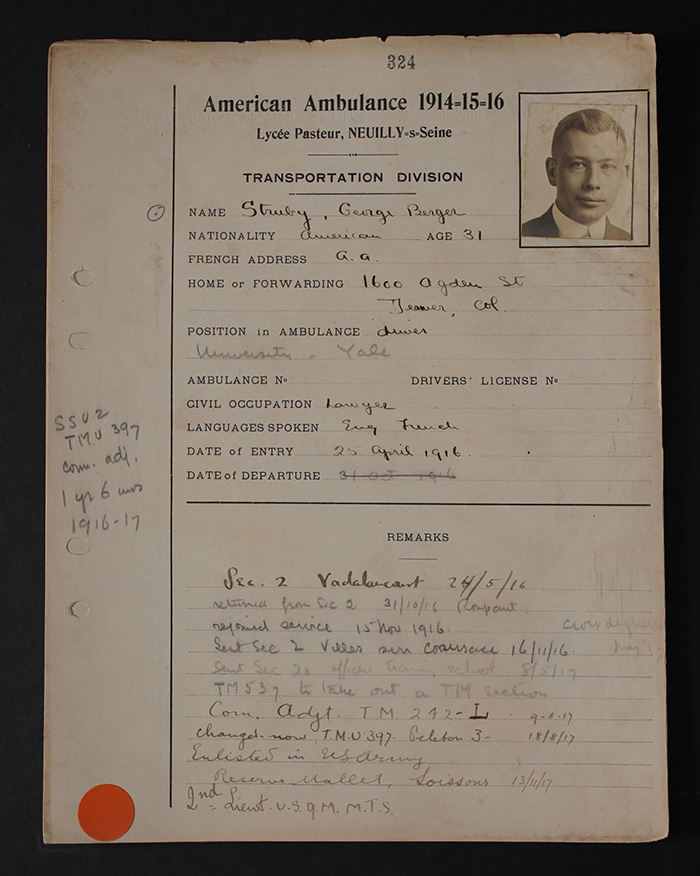 324
American Ambulance 1914=15=16
Lycée Pasteur, NEUILLY=s=Seine
TRANSPORTATION DIVISION
NAME Struby, George Berger
NATIONALITY American AGE 31
FRENCH ADDRESS A.A.
HOME or FORWARDING 1600 Ogden St
Denver, Col.
POSITION in AMBULANCE driver
University - Yale
AMBULANCE No DRIVERS' LICENSE No
CIVIL OCCUPATION Lawyer
LANGUAGES SPOKEN Eng French
DATE of ENTRY 25 April 1916.
DATE of DEPARTURE 31 Oct 1916
SSU 2
TMU 397
com. adj.
1 yr 6 mos
1916-17
REMARKS
Sec. 2 Vadelaincourt 24/5/16
returned from Sec 2 31/10/16
rejoined service 15 Nov 1916.
Croix de guerre
Sent Sec 2 Villes sur Cousances 16/11/16.
May '17
Sent Sec 20 officers training school 8/5/17
TM 537 to take out a TM section
Com. Adjt. T.M. 242-L 9-8-17
changed now T.M.U 397. Peloton 3- 18/8/17
Enlisted in US Army
Reserve Mallet, Soissons 13/11/17
2nd Lieut. U.S.Q.M. M.T.S.